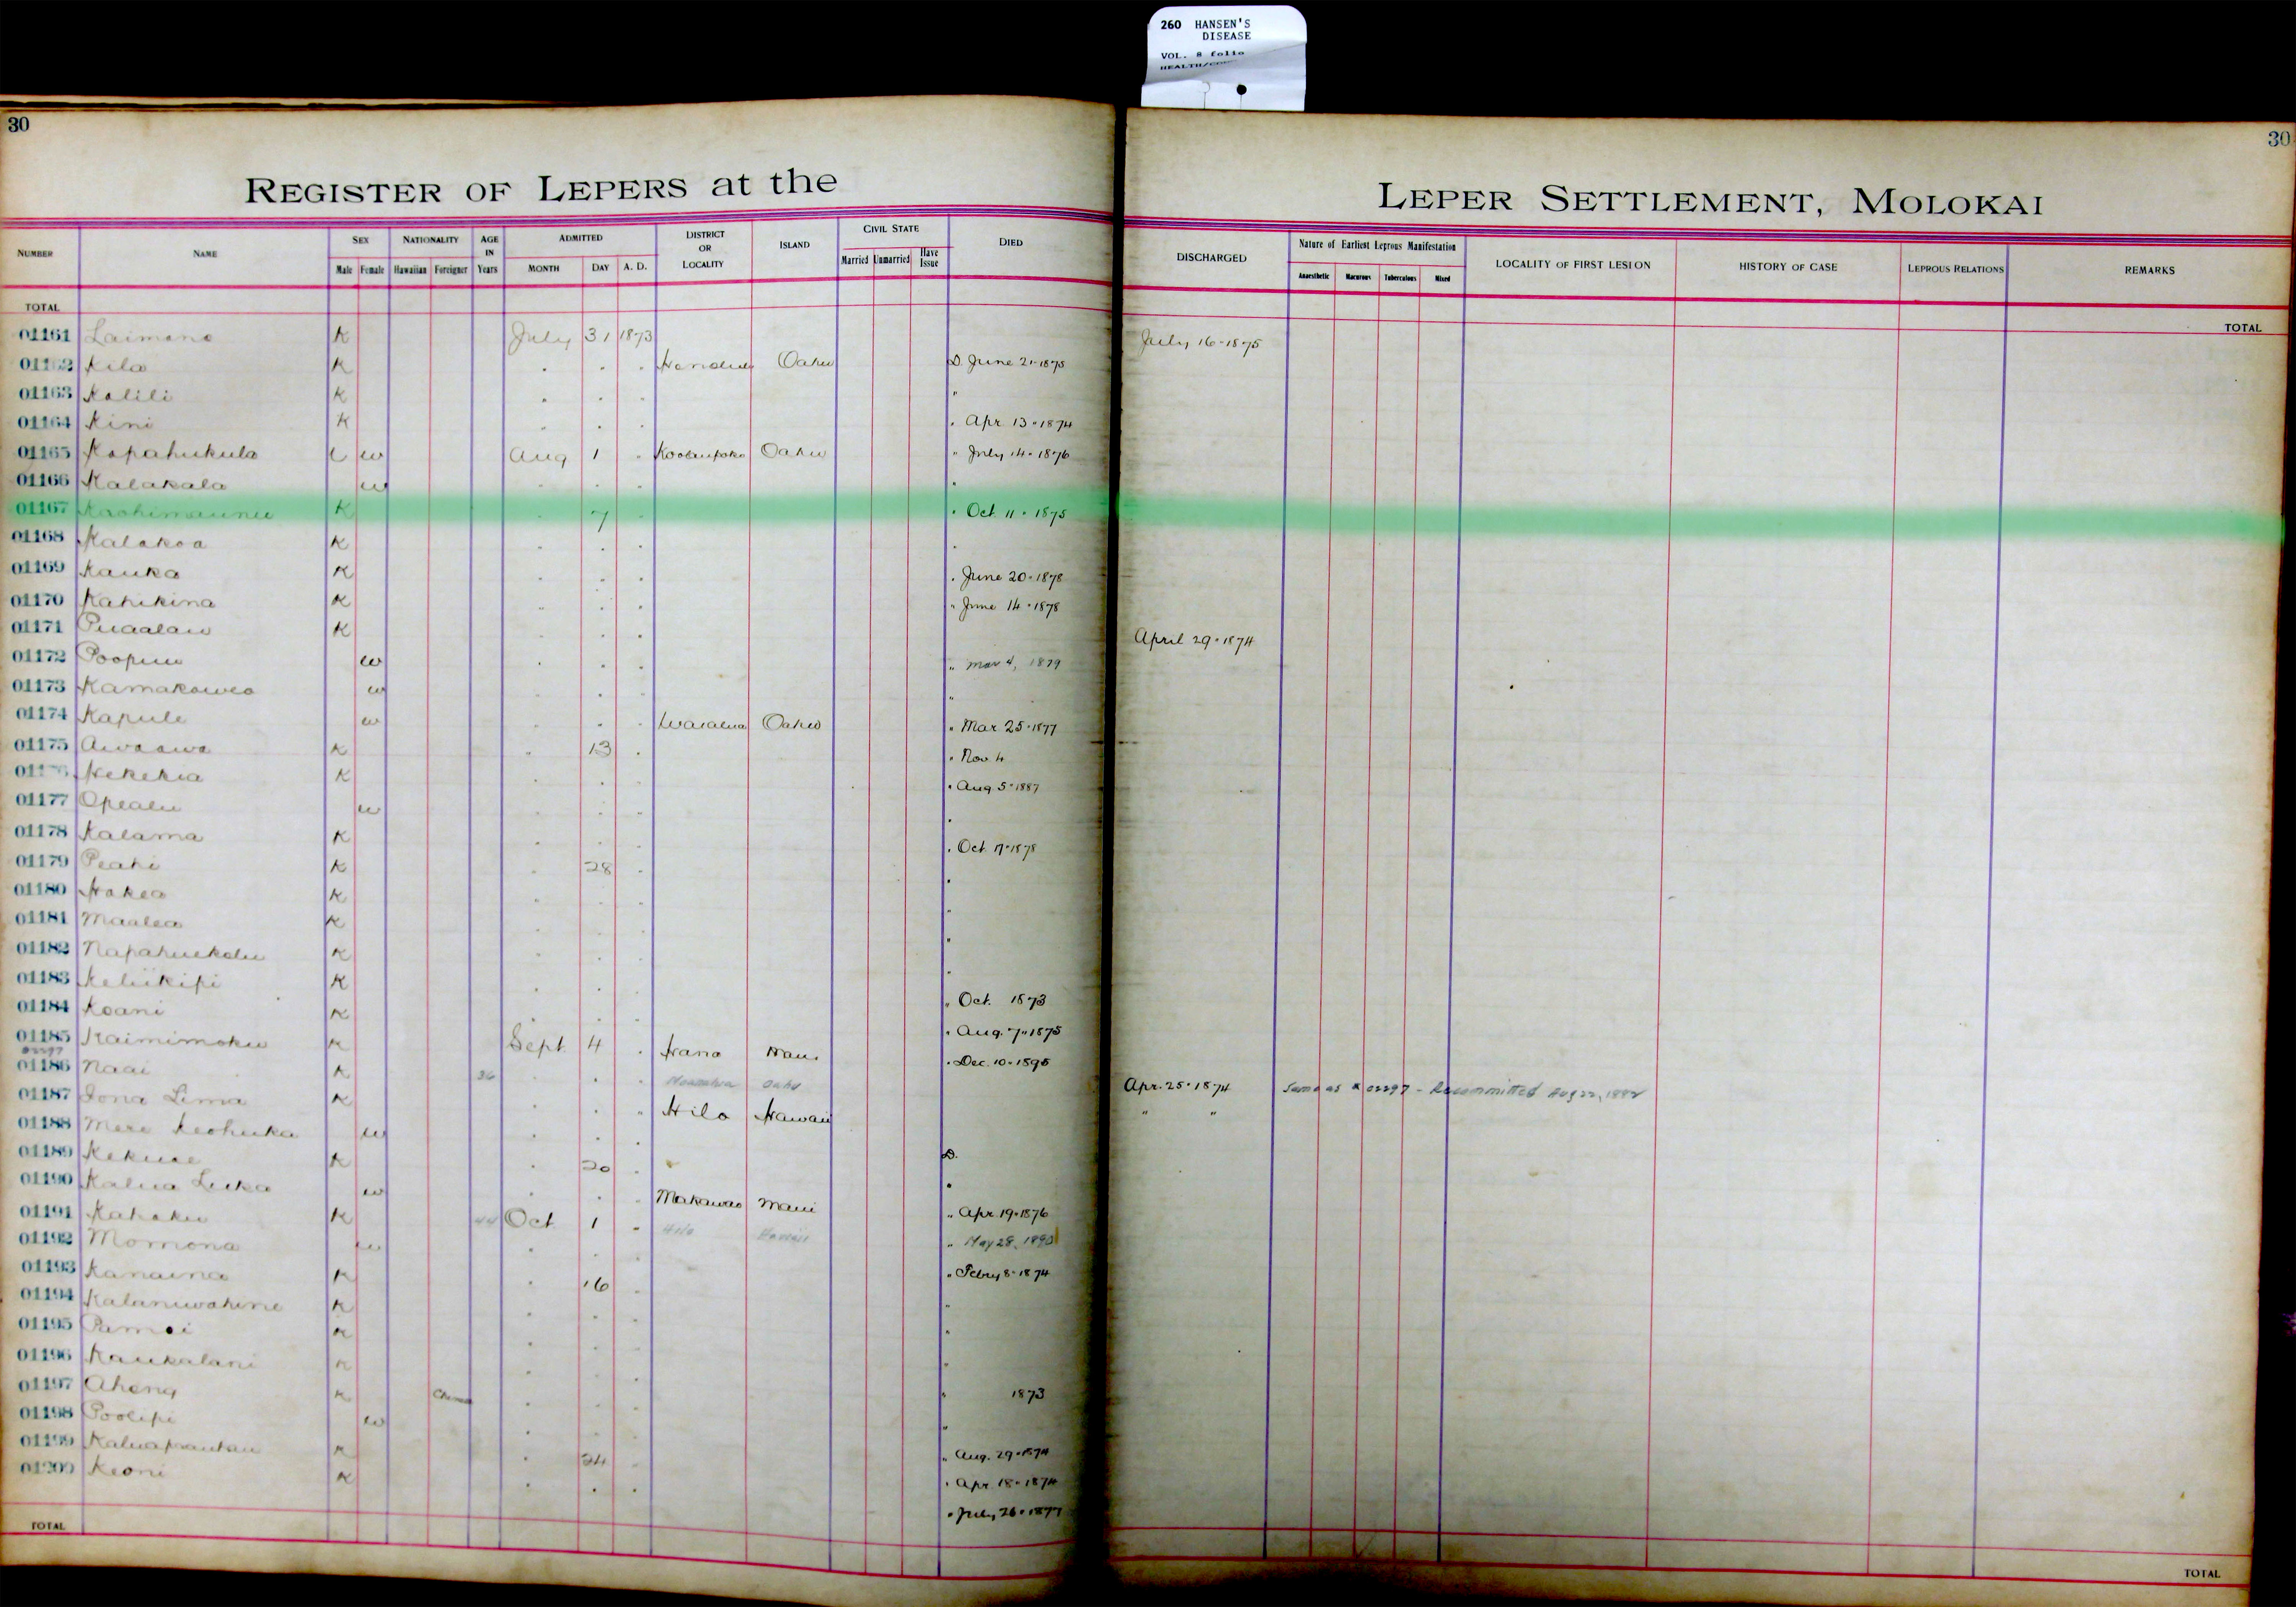 260 HANSEN'S
DISEASE
VOL. 8 folio
30
30
REGISTER OF LEPERS at the
LEPER SETTLEMENT, MOLOKAI
NUMBER NAME SEX Male Female NATIONALITY Hawaiian Foreigner AGE IN Years ADMITTED MONTH DAY A. D. DISTRICT OR LOCALITY ISLAND CIVIL STATE Married Unmarried Have Issue DIED
DISCHARGED Nature of Earliest Leprous Manifestation Anaesthetic Macurous Tuberculous Mixed LOCALITY OF FIRST LESION HISTORY OF CASE LEPROUS RELATIONS REMARKS
TOTAL
TOTAL
01161 Laimana K July 31 1873 July 16-1875
Kila K " " " Honolulu Oahu D. June 21-1875
01163 Kalili K " " " "
01164 Kini K " " " " Apr. 13-1874
01165 Kapahukula w Aug 1 " Koolaupoko Oahu " July 14-1876
01166 Kalakala w " " " "
01167 K " 7 " " Oct. 11-1875
01168 Kalakoa K " " " "
01169 Kauka K " " " " June 20-1878
01170 Kahikina K " " " " June 14-1878
01171 Puaalau K " " " April 29-1874
01172 w " " " " Mar 4, 1879
01173 Kamakawea w " " " "
01174 Kapule w " " " Waialua Oahu " Mar. 25-1877
01175 Awaawa K " 13 " " Nov. 4
Hekekia K " " " " Aug 5-1887
01177 Opealu w " " " "
01178 Kalama K " " " " Oct. 17-1878
01179 Peahi K " 28 " "
01180 Hakea K " " " "
01181 Maalea K " " " "
01182 Napahuekolu K " " " "
01183 Keliikipi K " " " " Oct. 1873
01184 Koani K " " " " Aug. 7-1875
01185 Kaimimoku K Sept 4 " Hana Maui " Dec. 10-1895
01186 Naai K 36 " " " Oahu Apr. 25-1874 Same as # 02297 - Recommitted Aug 22, 1882
01187 Iona Lima K " " " Hilo Hawaii " "
01188 Mere Keohuka w " " " D.
01189 Kekuae K " 20 " "
01190 Kalua Luka w " " " Makawao Maui " Apr. 19-1876
01191 Kahaku K 44 Oct 1 " Hilo Hawaii " May 28, 1890
01192 Momona w " " " " Febry 8-1874
01193 Kanaina K " 16 " "
01194 Kalaniwahine K " " " "
01195 K " " " "
01196 Kaukalani K " " " " 1873
01197 Aheng K " " " "
01198 Poolipi w " " " " Aug. 29-1874
01199 K " 24 " " Apr. 18-1874
01200 Keoni K " " " " July 26-1877
TOTAL
TOTAL